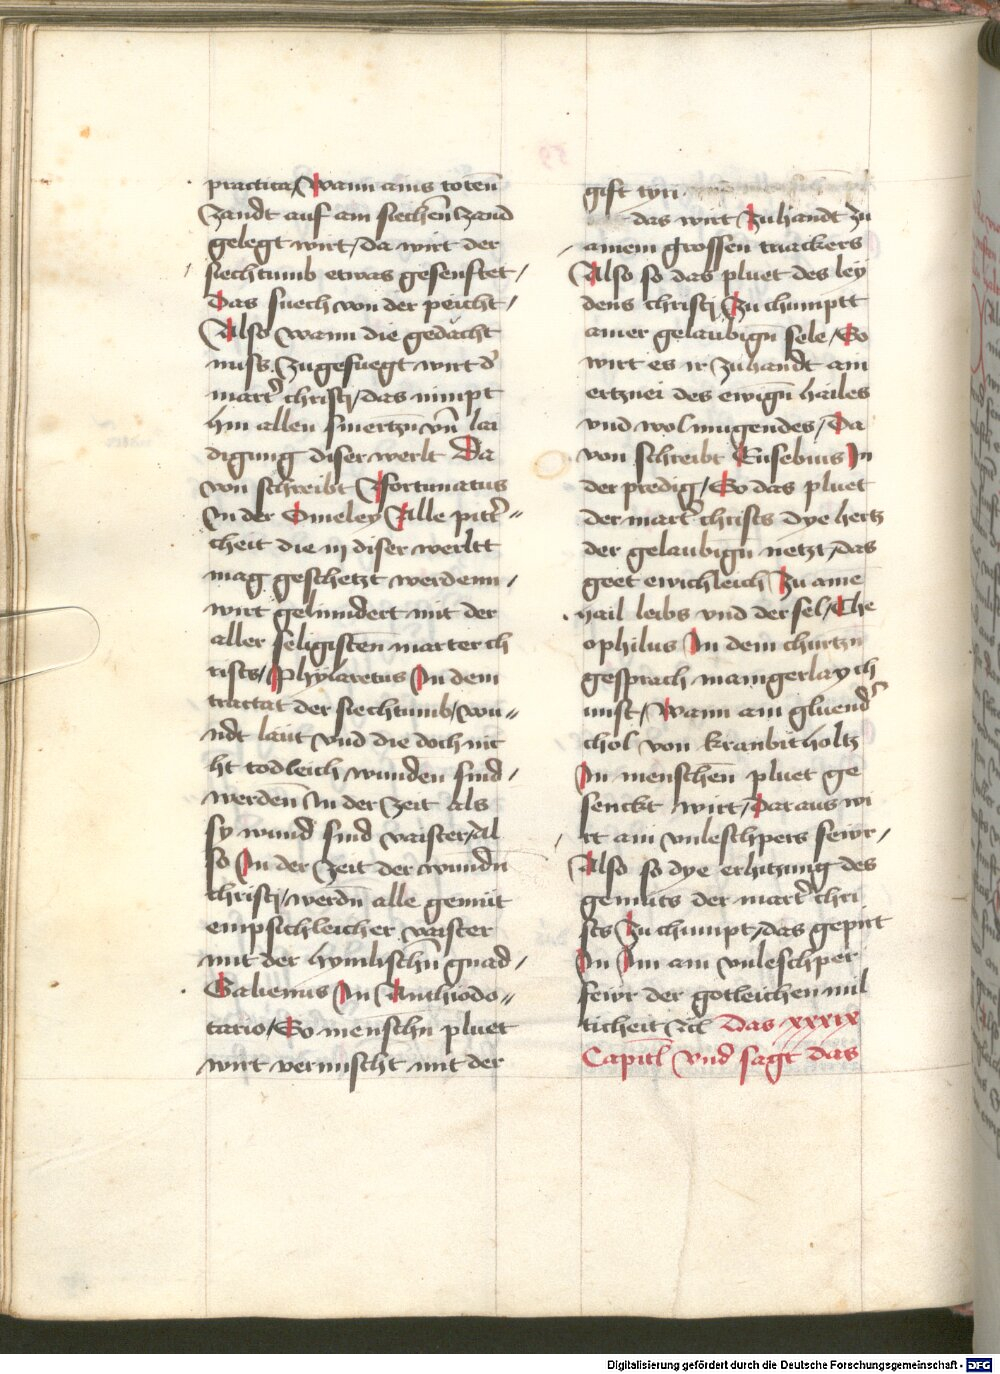 practica / Wann ains toten̄
Zandt auf ain siechen̄ Zand
gelegt wirt / da wirt der
siechtumb etwas gesenftet /
Das suech von der peicht /
Also wann die gedächt
nuss zugefuegt wirt d'
mart' christi / das nimpt
hin allen smertzn̄ vn̄ lai
digung diser werlt Da
von schreibt Affortunatus
In der Omeley Alle pitt' =
cheit die in diser werltt
mag geschetzt werdenn /
wirt gelinndert mit der
aller seligisten̄ marter ch
rists / Phylaretus In dem
tractat der siechtumb / wu =
ndt laüt vnd die doch nic
ht todleich wunden sind /
werden̄ In der Zeit als
sy wund sind vaister / Al
so In der Zeit der wundn̄
christi / werdn̄ alle gemüt
empfichleicher vaister
mit der hymlischn̄ gnad /
Galienus In Anthiodo =
tario / So menschn̄ pluet
wirt vermischt mit der
gift tyri
das wirt Zuhandt zu
ainem grossen trackers
Also so das pluet des ley
dens christi Zu chumptt
ainer gelaubign̄ sele / So
wirt es ir zuhandt ain
ertznei des ewign̄ hailes
vnd wol mugendes / Da
von schreibt Eusebius In
der predig / So das pluet
der mart' christs dye hertz
der gelaubign̄ netzt / das
geet ewichleich Zu aine
hail leibs vnd der sel / The
ophilus In dem churtzn̄
gesprach manigerlay ch
unst / Wann ain gluend'
chol von kranbitholtz
In menschen̄ pluet ge
senckt wirt / Daraus wi
rt ain vnleschpers feiur /
Also so dye erhitzung des
gemüts der mart' chri
sts Zu chumpt / das gepirt
In Im ain vnleschper
feiur der gotleichen mil
ticheit &c̄ Das xxxix
Capitl vnd sagt das
Digitalisierung gefördert durch die Deutsche Forschungsgemeinschaft - DFG